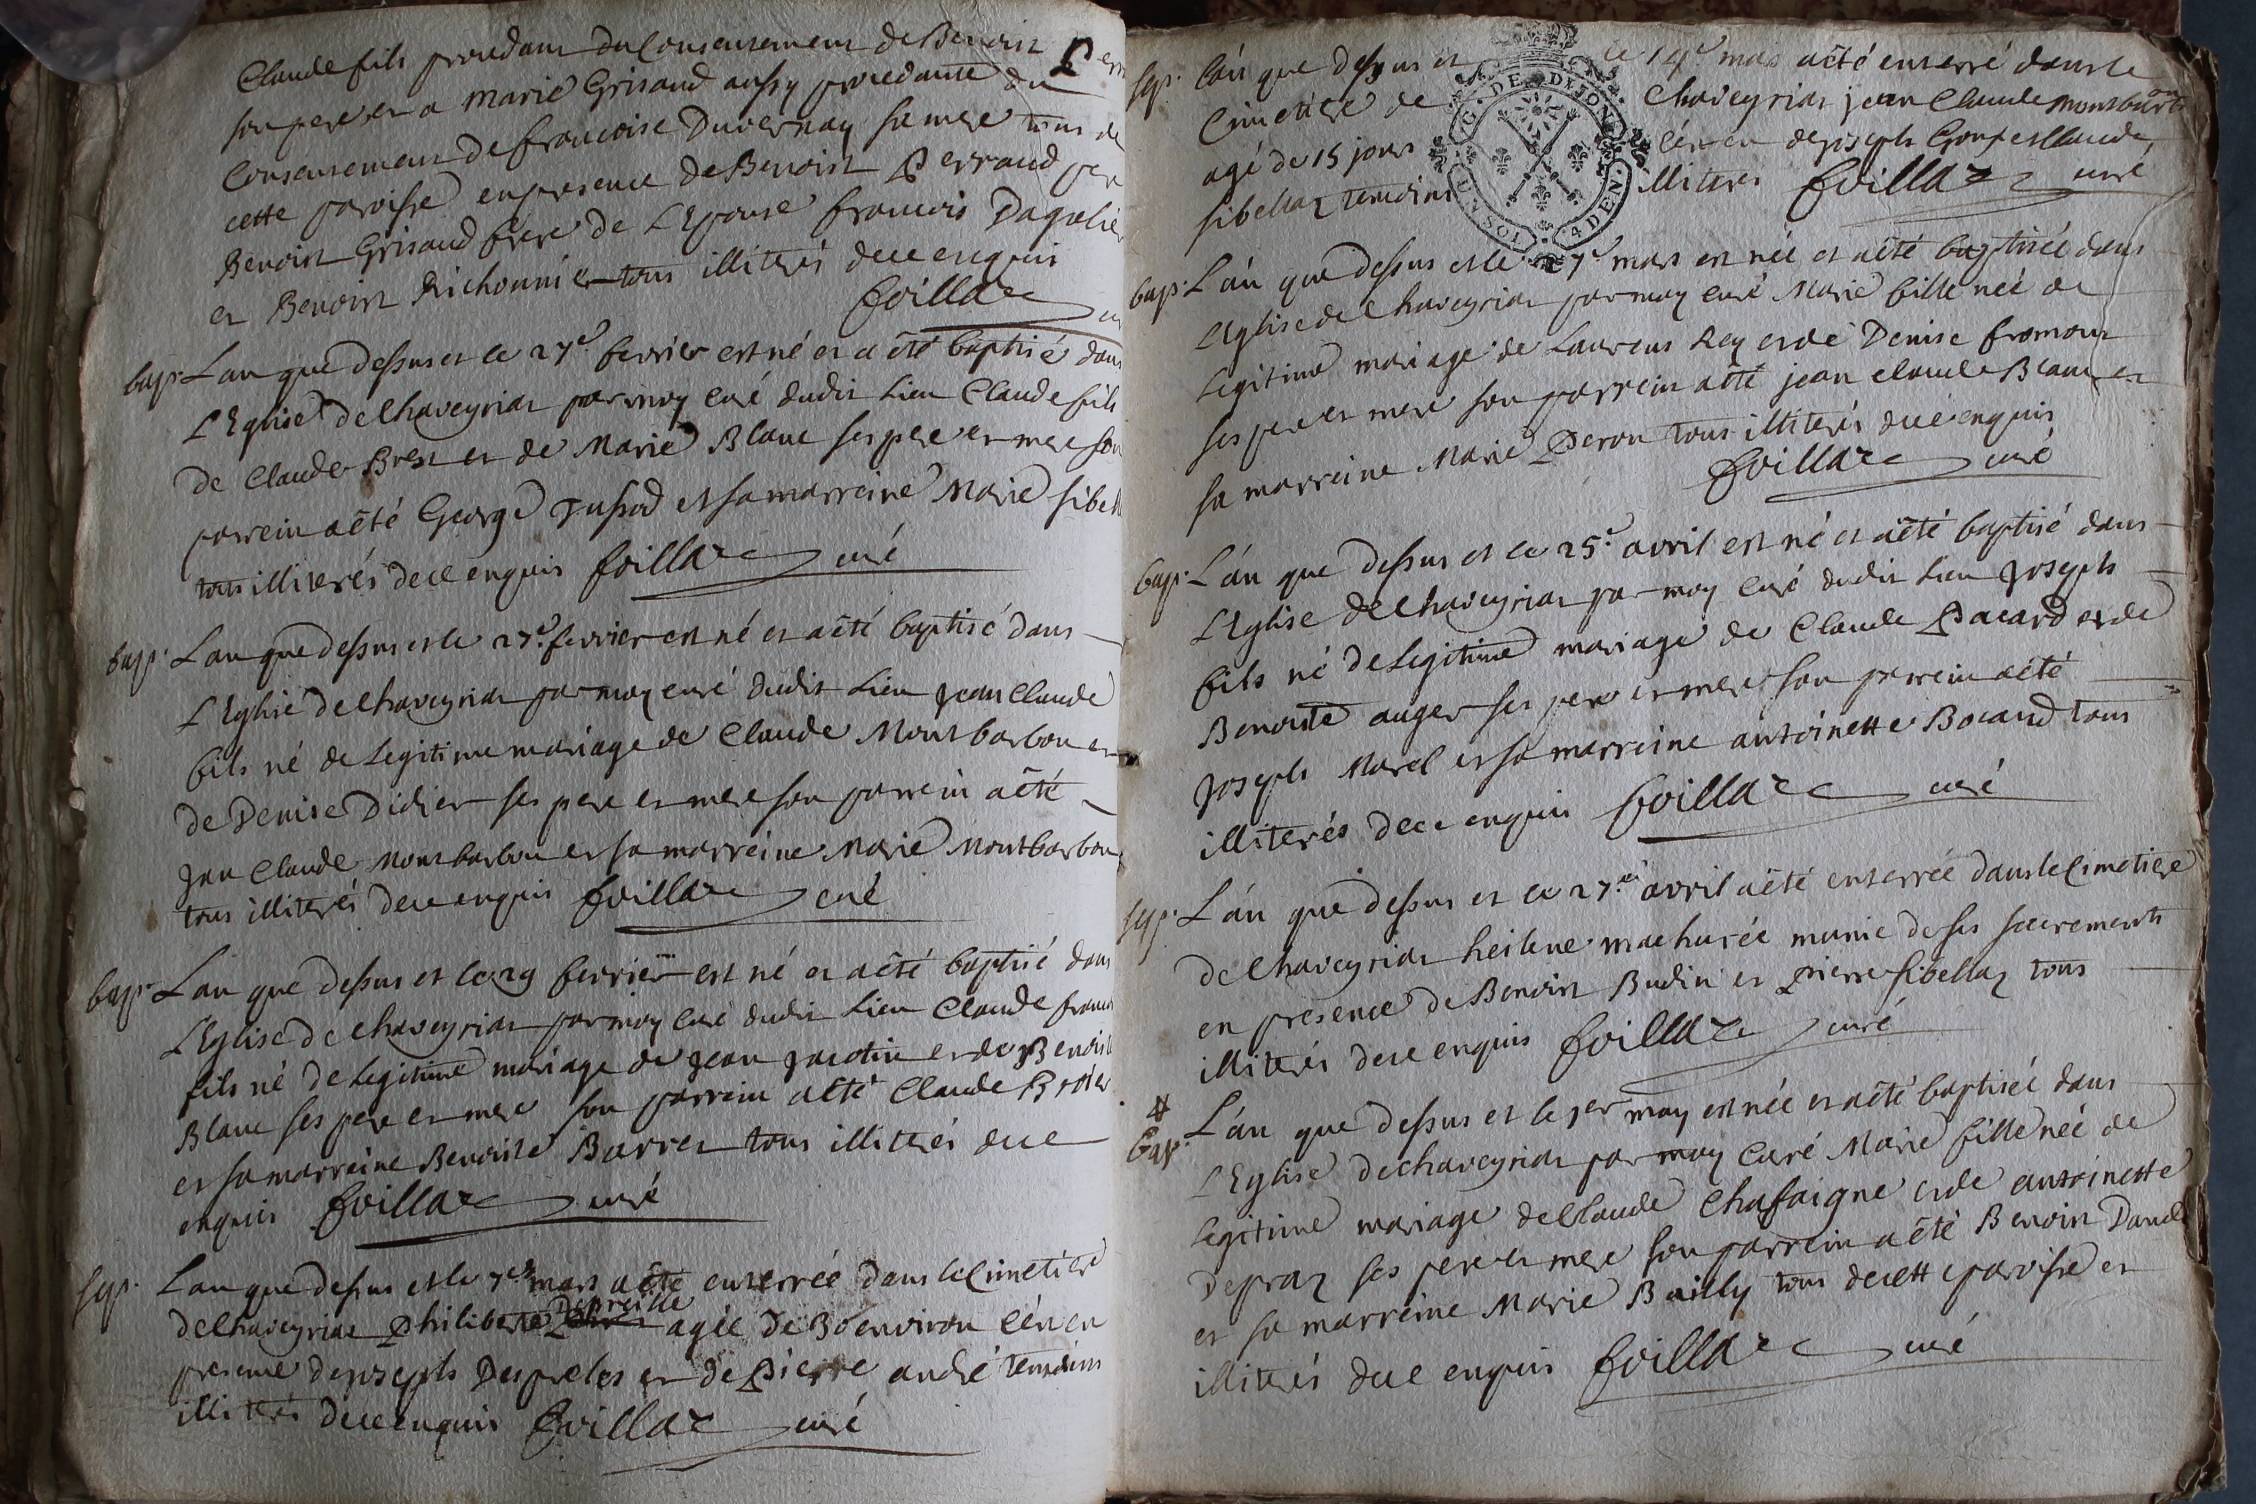 Claude fils procedant du Consentement de Benoist Perr
son pere et a Marie Grisaud aussy procedante du
Consentement de francoise Duvernay sa mere tous de
cette paroisse en presence de Benoist Perraud pere
Benoist Grisaud frere de L'Epouse francois Dagalier
et Benoist Richonnier tous illiterés de ce enquis
foillaz curé
bap. L'an que dessus et le 27e fevrier est né et a èté baptisé dans
L'Eglise de Chaveyriat par moy curé dudit Lieu Claude fils
de Claude Brest et de Marie Blanc ses pere et mere son
parrein a èté George Tussod et sa marreine Marie Sibell
tous illiterés de ce enquis foillaz curé
bap. L'an que dessus et le 27e fevrier est né et a èté baptisé dans
L'Eglise de Chaveyriat par moy curé dudit Lieu Jean Claude
fils né de Legitime mariage de Claude Montbarbon et
de Denise Didier ses pere et mere son parrein a èté
Jean Claude Montbarbon et sa marreine Marie Montbarbon
tous illiterés de ce enquis foillaz curé
bap. L'an que dessus et le 29 fevrier est né et a èté baptisé dans
L'Eglise de Chaveyriat par moy curé dudit Lieu Claude francois
fils né de Legitime mariage de Jean Jacotin et de Benoiste
Blanc ses pere et mere son parrein a èté Claude Broier
et sa marreine Benoiste Barret tous illiterés de ce
enquis foillaz curé
sep. L'an que dessus et le 7e mars a èté enterrée dans le Cimetiere
de Chaveyriat Philiberte Depreille agée de 30 environ c'en en
presence de joseph Despreles et de Pierre andré temoins
illiterés de ce enquis foillaz curé
sep. L'án que dessus et le 14e mars a èté enterré dans le
Cimetiere de Chaveyriat jean Claude Montbarbon
agé de 15 jours c'en en de joseph Gonf et Claude
sibellaz temoins illiterés foillaz curé
G. DE DIJON
4 DEN.
bap. L'án que dessus et le 27e mars est née et a èté baptisée dans
L'Eglise de Chaveyriat par moy curé Marie fille née de
Legitime mariage de Laurens Rey et de Denise fromont
ses pere et mere son parrein a èté jean claude Beau et
sa marreine Marie Peron tous illiterés de ce enquis
foillaz curé
bap. L'án que dessus et le 25e avril est né et a èté baptisé dans
L'Eglise de Chaveyriat par moy curé dudit Lieu Joseph
fils né de Legitime mariage de Claude Pacard et de
Benoiste auger ses pere et mere son parrein a èté
Joseph Morel et sa marreine antoinette Bocard tous
illiterés de ce enquis foillaz curé
sep. L'án que dessus et le 27e avril a èté enterrée dans le Cimetiere
de Chaveyriat heilene machurée munie de ses sacrements
en presence de Benoist Budin et Pierre Sibellaz tous
illiterés de ce enquis foillaz curé
bap. L'án que dessus et le 1er may est née et a èté baptisée dans
L'Eglise de chaveyriat par moy Curé Marie fille née de
Legitime mariage de Claude Chafaigne et de antoinette
Depraz ses pere et mere son parrein a èté Benoist Dand
et sa marreine Marie Bailly tous de cette paroisse et
illiterés de ce enquis foillaz curé